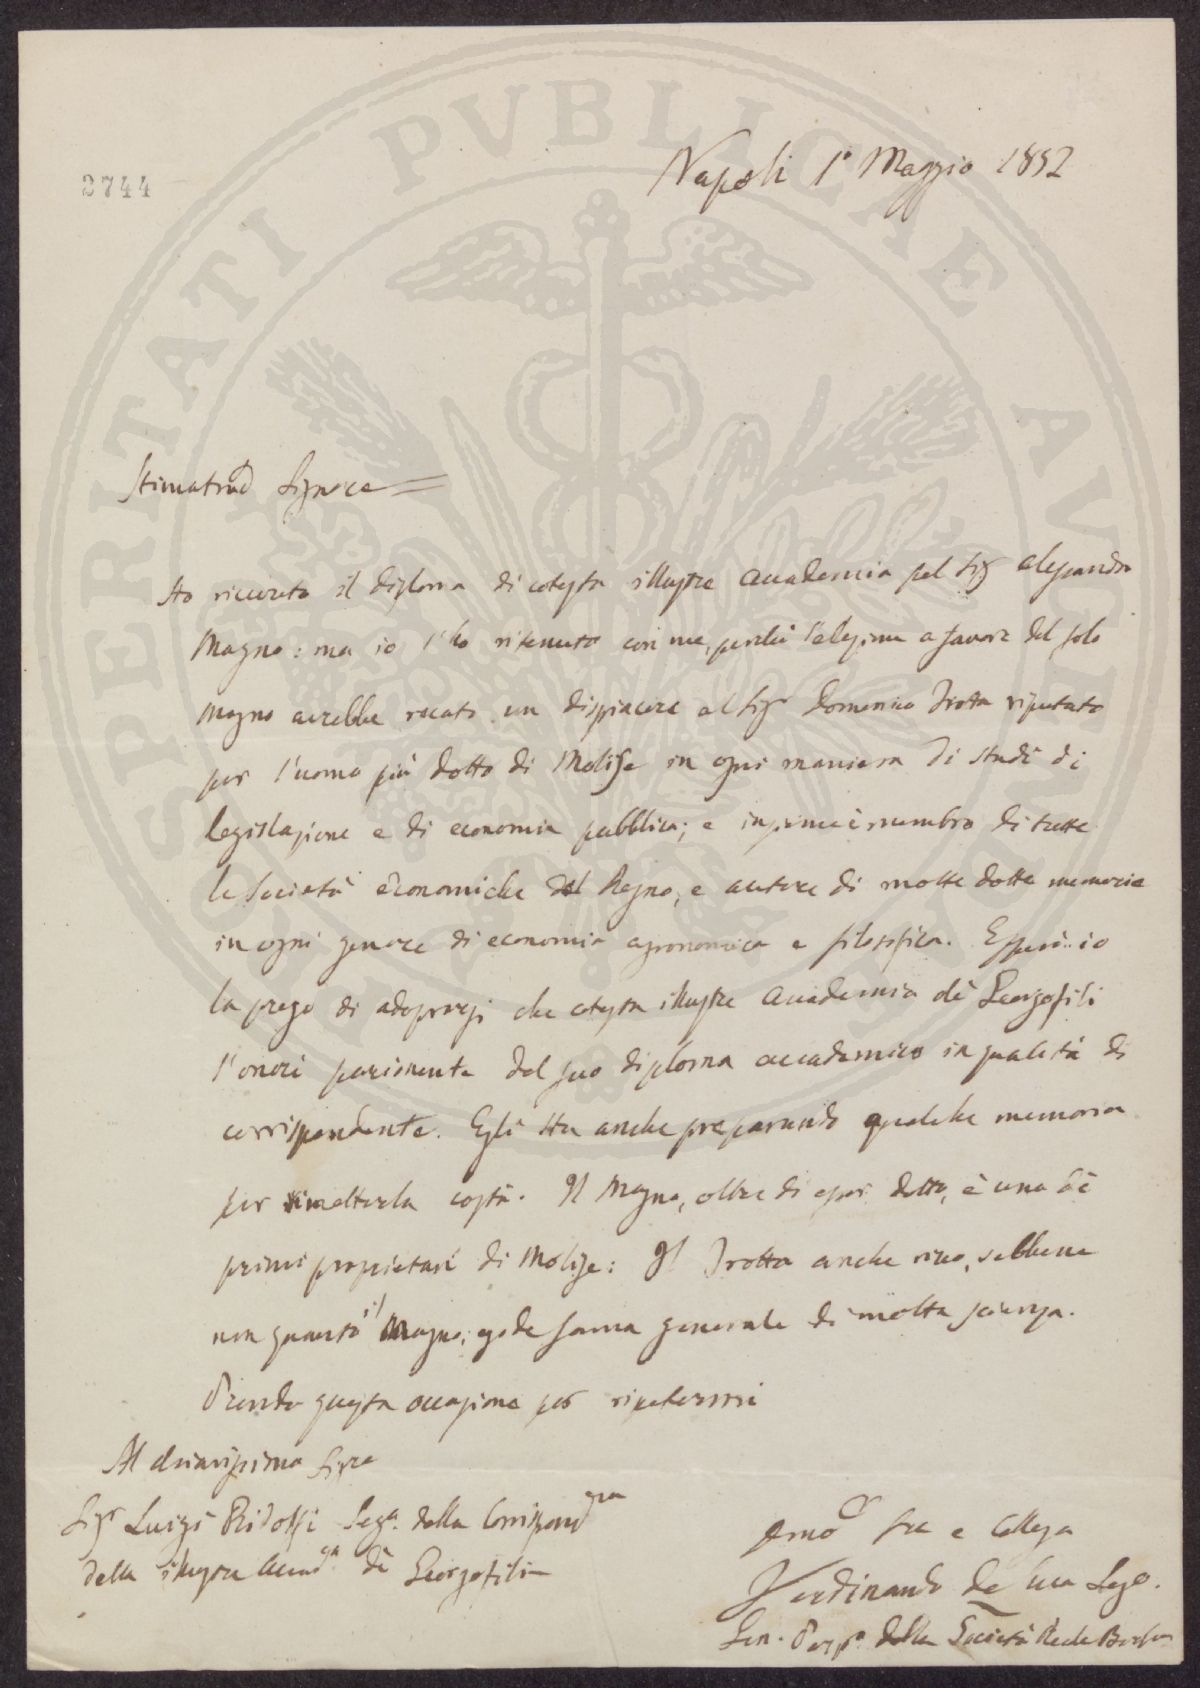 PROSPERITATI PVBLICAE AVGENDAE
2744
Napoli 1° Maggio 1852
Stimatmo Signore
Ho ricevuto il diploma di cotesta illustre Accademia pel Sigr Alessandro
Magno: ma io l'ho ritenuto con me, perché l'elezione a favore del solo
Magno avrebbe recato un dispiacere al Sigr Domenico Trotta riputato
per l'uomo più dotto di Molise in ogni maniera di studi di
legislazione e di economia pubblica; e insieme è membro di tutte
le Società economiche del Regno, e autore di molte dotte memorie
in ogni genere di economia agronomica e filosofica. Epperò io
la prego di adoprarsi che cotesta illustre Accademia de' Georgofili
l'onori parimente del suo diploma accademico in qualità di
corrispondente. Egli sta anche preparando qualche memoria
per rimetterla costà. Il Magno, oltre di esser dotto, è uno de'
primi proprietari di Molise: Il Trotta anche ricco, sebbene
non quanto il Magno, gode fama generale di molta scienza.
Prendo questa occasione per ripetermi
Al chiarissimo Sigre
Sigr Luigi Ridolfi Sego. della Corrispondza
della illustre Accada de' Georgofili
Devmo Sre e Collega
Ferdinando de Luca Sego.
Gen. Perpo. della Società Reale Borbon